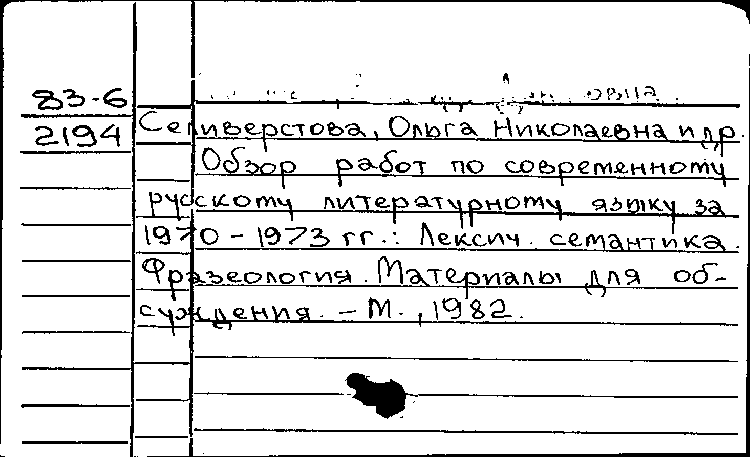 83-6
2194
Селиверстова, Ольга Николаевна и др.
Обзор работ по современному
русскому литературному языку за
1970 - 1973 гг.: Лексич. семантика.
Фразеология. Материалы для об-
суждения. - М., 1982.